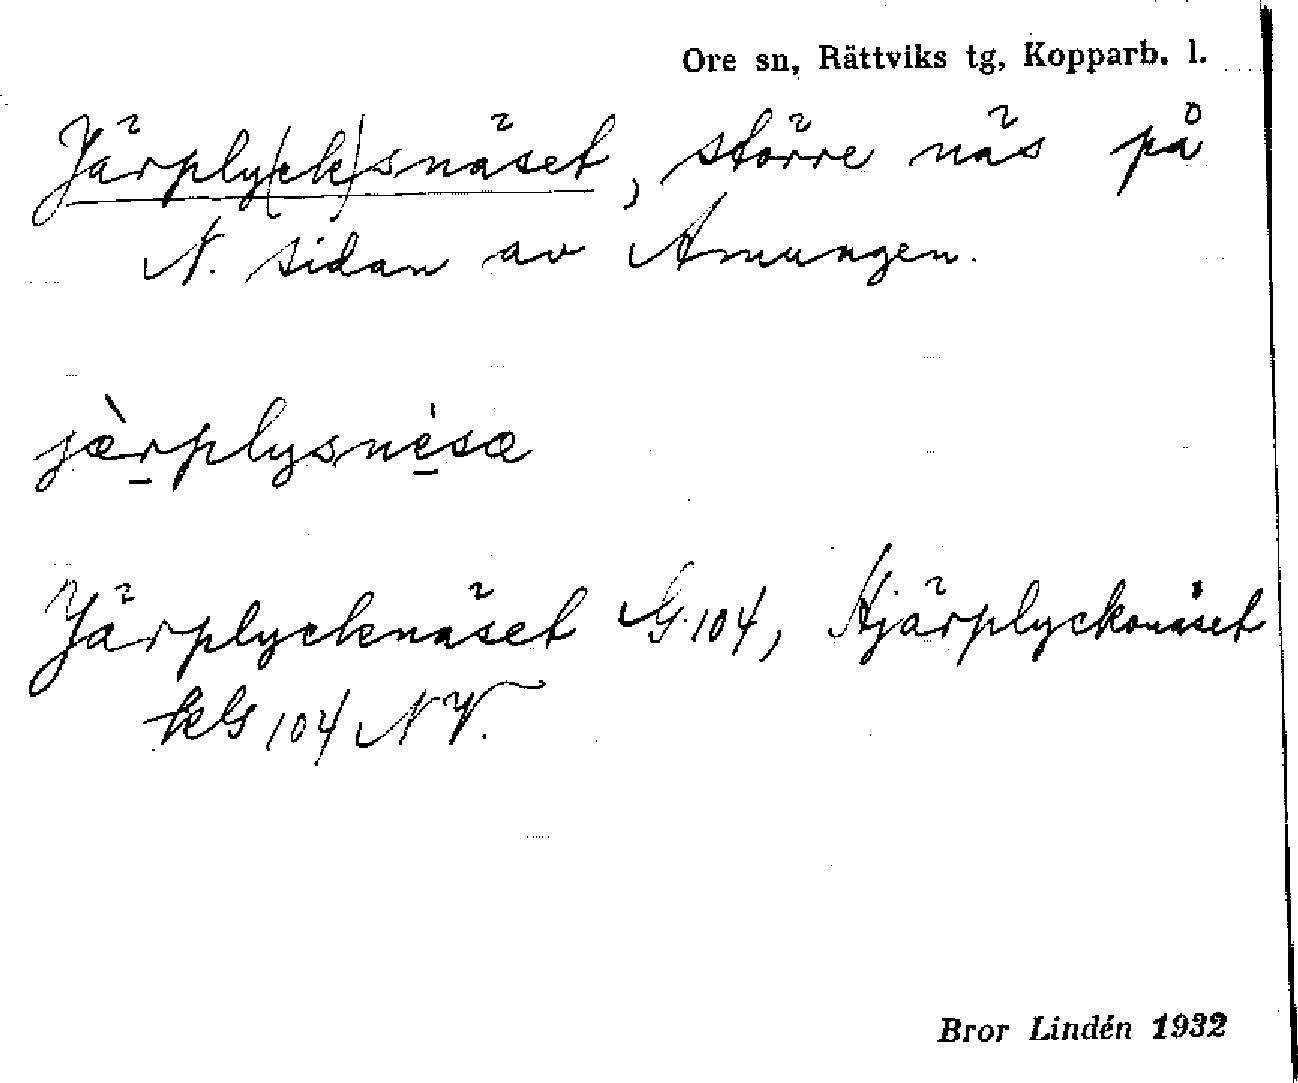 Ore sn, Rättviks tg, Kopparb. l.
Järply(ck)snäset, större näs på
N. sidan av Amungen.
jæ̀rplysnèsæ
Järplycknäset G 104, Hjärplyckonäset
kG 104 NV.
Bror Lindén 1932